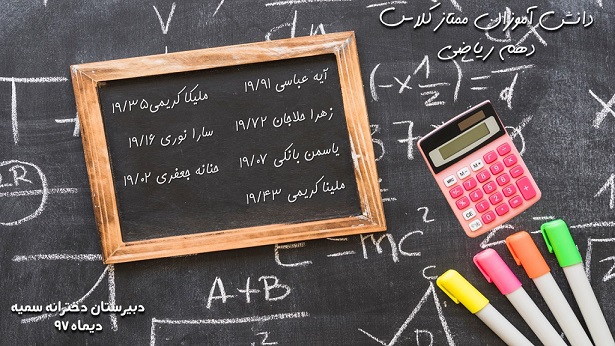 دانش آموزان ممتاز کلاس
دهم ریاضی
آیه عباسی ۱۹/۹۱
زهرا حلاجان ۱۹/۷۲
یاسمن بانکی ۱۹/۰۷
ملینا کریمی ۱۹/۴۳
ملیکا کریمی ۱۹/۳۵
سارا نوری ۱۹/۱۶
حنانه جعفری ۱۹/۰۲
(-x 1/2) =
d
7
LR
E=mc²
A+B
C
CE
دبیرستان دخترانه سمیه
دیماه ۹۷